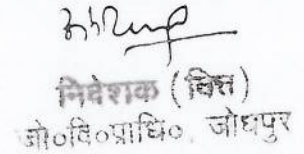 निदेशक (वित्त)
जो०वि०प्राधि०, जोधपुर